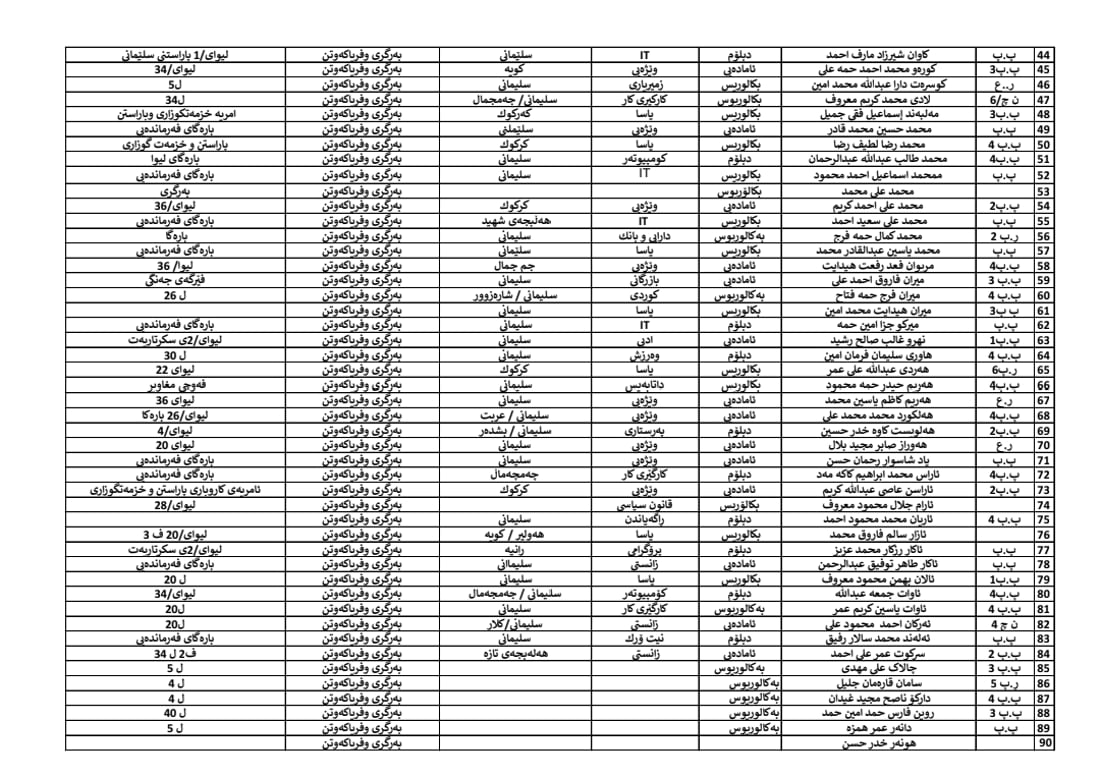 44 ب.پ کاوان شیرزاد مارف احمد دبلۆم IT سلێمانی بەرگری وفریاکەوتن لیوای/1 پاراستنی سلێمانی
45 ب.ب3 کورەو محمد احمد حمە علی ئامادەیی وێژەیی کویە بەرگری وفریاکەوتن لیوای/34
46 ر..ع کوسرەت دارا عبداللە محمد امین بکالوریس ژمێریاری سلیمانی بەرگری وفریاکەوتن ل5
47 ن ج/6 لادی محمد کریم معروف بکالوریوس کارگیری کار سلیمانی/ جەمجمال بەرگری وفریاکەوتن ل34
48 ب.ب3 مەلبەند إسماعیل فقی جمیل بکالوریس یاسا کەرکوك بەرگری وفریاکەوتن امریە خزمەتکوزاری وپاراستن
49 ب.پ محمد حسین محمد قادر ئامادەیی وێژەیی سلێملنی بەرگری وفریاکەوتن بارەگای فەرماندەیی
50 ب.ب 4 محمد رضا لطیف رضا بکالوریس یاسا کرکوك بەرگری وفریاکەوتن پاراستن و خزمەت گوزاری
51 ب.ب4 محمد طالب عبداللە عبدالرحمان دبلۆم کومپیوتەر سلیمانی بەرگری وفریاکەوتن بارەگای لیوا
52 ب.پ ممحمد اسماعیل احمد محمود بکالوریس IT سلیمانی بەرگری وفریاکەوتن بارەگای فەرماندەیی
53 محمد علی محمد بکالۆریوس بەرگری وفریاکەوتن بەرگری
54 ب.ب2 محمد علی احمد کریم ئامادەیی وێژەیی کرکوك بەرگری وفریاکەوتن لیوای/36
55 ب.پ محمد علی سعید احمد بکالوریس IT هەلبجەی شهید بەرگری وفریاکەوتن بارەگای فەرماندەیی
56 ر.ب 2 محمد کمال حمە فرج بەکالوریوس دارایی و بانك سلیمانی بەرگری وفریاکەوتن بارەگا
57 ب.پ محمد یاسین عبدالقادر محمد بکالوریس یاسا سلێمانی بەرگری وفریاکەوتن بارەگای فەرماندەیی
58 ب.ب4 مریوان فعد رفعت هیدایت ئامادەیی وێژەیی جم جمال بەرگری وفریاکەوتن لیوا/ 36
59 ب.ب 3 میران فاروق احمد علی ئامادەیی بازرگانی سلیمانی بەرگری وفریاکەوتن فێرگەی جەنگی
60 ب.ب 4 میران فرج حمە فتاح بەکالوریوس کوردی سلیمانی / شارەزوور بەرگری وفریاکەوتن ل 26
61 ب ب3 میران هیدایت محمد امین بکالوریس یاسا سلیمانی بەرگری وفریاکەوتن
62 ب.پ میرکو جزا امین حمە دبلۆم IT سلیمانی بەرگری وفریاکەوتن بارەگای فەرماندەیی
63 ب.ب1 نهرو غالب صالح رشید ئامادەیی ادبی سلیمانی بەرگری وفریاکەوتن لیوای/2ی سکرتاریەت
64 ب.ب 4 هاوری سلیمان فرمان امین دبلۆم وەرزش سلیمانی بەرگری وفریاکەوتن ل 30
65 ر.ب6 هەردی عبداللە علی عمر بکالوریس یاسا کەرکوك بەرگری وفریاکەوتن لیوای 22
66 ب.ب4 هەریم حیدر حمە محمود بکالوریس داتابەیس سلیمانی بەرگری وفریاکەوتن فەوجی مغاویر
67 ر.ع هەریم کاظم یاسین محمد ئامادەیی وێژەیی سلیمانی بەرگری وفریاکەوتن لیوای 36
68 ب.ب4 هەلکورد محمد محمد علی ئامادەیی وێژەیی سلیمانی / عربت بەرگری وفریاکەوتن لیوای/26 بارەکا
69 ب.ب2 هەلویست کاوە خدر حسین دبلۆم پەرستاری سلیمانی / پشدەر بەرگری وفریاکەوتن لیوای/4
70 ر.ع هەوراز صابر مجید بلال ئامادەیی وێژەیی سلیمانی بەرگری وفریاکەوتن لیوای 20
71 ب.پ یاد شاسوار رحمان حسن ئامادەیی وێژەیی سلیمانی بەرگری وفریاکەوتن بارەگای فەرماندەیی
72 ب.ب4 ئاراس محمد ابراهیم کاکە مەد دبلۆم کارگێری کار جەمجەمال بەرگری وفریاکەوتن بارەگای فەرماندەیی
73 ب.ب2 ئاراسن عاصی عبداللە کریم ئامادەیی وێژەیی کرکوك بەرگری وفریاکەوتن ئامریەی کاروباری پاراستن و خزمەتگوزاری
74 ئارام جلال محمود معروف بکالۆریس قانون سیاسی بەرگری وفریاکەوتن لیوای/28
75 ب.ب 4 ئاریان محمد محمود احمد دبلۆم راگەیاندن سلیمانی بەرگری وفریاکەوتن
76 ئازار سالم فاروق محمد بکالوریس یاسا هەولیر / کویە بەرگری وفریاکەوتن لیوای/20 ف 3
77 ب.پ ئاکار رزگار محمد عزیز دبلۆم پرۆگرامی رانیە بەرگری وفریاکەوتن لیوای/2ی سکرتاریەت
78 ب.پ ئاکار طاهر توفیق عبدالرحمن ئامادەیی زانستی سلیمااانی بەرگری وفریاکەوتن بارەگای فەرماندەیی
79 ب.ب1 ئالان بهمن محمود معروف بکالوریس یاسا سلیمانی بەرگری وفریاکەوتن ل 20
80 ب.ب4 ئاوات جمعە عبداللە دبلۆم کۆمپیوتەر سلیمانی / جەمجەمال بەرگری وفریاکەوتن لیوای/34
81 ب.ب 4 ئاوات یاسین کریم عمر بەکالوریوس کارگێری کار سلیمانی بەرگری وفریاکەوتن ل20
82 ن ج 4 ئەرکان احمد محمود علی ئامادەیی زانستی سلیمانی/کلار بەرگری وفریاکەوتن ل20
83 ب.پ ئەلەند محمد سالار رفیق دبلۆم نیت ۆرك سلیمانی بەرگری وفریاکەوتن بارەگای فەرماندەیی
84 ب.ب 2 سرکوت عمر علی احمد ئامادەیی زانستی هەلەبجەی تازە بەرگری وفریاکەوتن ف2 ل 34
85 ب.ب 3 چالاک علی مهدی بەکالوریوس بەرگری وفریاکەوتن ل 5
86 ر.ب 5 سامان قارەمان جلیل بەکالوریوس بەرگری وفریاکەوتن ل 4
87 ب.ب 4 دارکۆ ناصح مجید غیدان بەکالوریوس بەرگری وفریاکەوتن ل 4
88 ب.ب 3 روبن فارس حمد امین حمد بەکالوریوس بەرگری وفریاکەوتن ل 40
89 ب.پ دانەر عمر همزە بەکالوریوس بەرگری وفریاکەوتن ل 5
90 هونەر خدر حسن بەرگری وفریاکەوتن